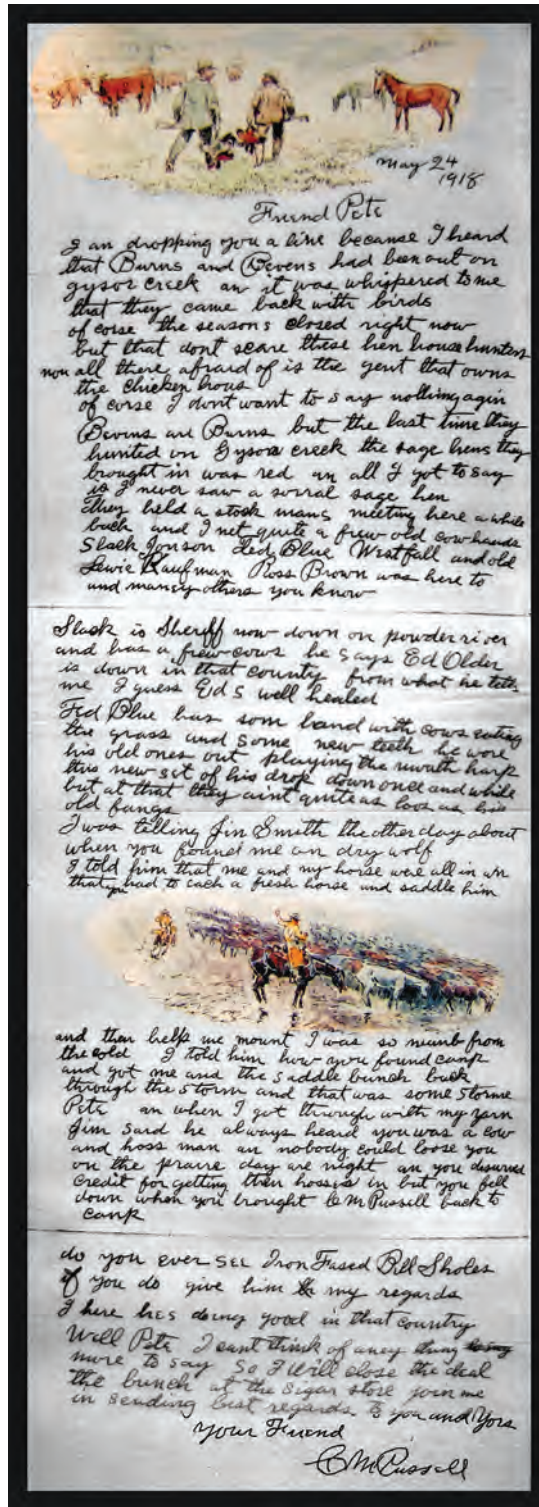 May 24
1918
Friend Pete
I an dropping you a line because I heard
that Burns and Bevens had been out on
gysor creek an it was whispered to me
that they came back with birds
of corse the seasons closed right now
but that dont scare these hen house hunters
non all there afraid of is the gent that owns
the chicken hous
of corse I dont want to say nothing agin
Bevens an Burns but the last time they
hunted on Gysor creek the sage hens they
brought in was red an all I got to say
is I never saw a sorral sage hen
They held a stock mans meeting here a while
back and I met quite a frew old cow hands
Slack Jonson Ted Blue Westfall and old
Lewie Kaufman Ross Brown was here to
and maney others you know
Slack is Sheriff now down on powder river
and has a frew cows he says Ed Older
is down in that county from what he tells
me I guess Ed s well healed
Ted Blue has som land with cows eating
the grass and some new teeth he wore
his old ones out playing the mouth harp
this new set of his drop down once and while
but at that they aint quite as loos as his
old fangs
I was telling Jim Smith the other day about
when you found me on dry wolf
I told him that me and my horse were all in an
that you had to cach a fresh horse and saddle him
and then help me mount I was so numb from
the cold I told him how you found camp
and got me and the saddle bunch back
through the storm and that was some storme
Pete an when I got through with my yarn
Jim said he always heard you was a cow
and hoss man an nobody could loose you
on the prairie day are night an you deserved
credit for getting then hosses in but you fell
down when you brought C M Russell back to
camp
do you ever see Iron Fased Bill Sholes
if you do give him my regards
I here hes doing good in that country
Well Pete I cant think of aney thing
more to say so I will close the deal
the bunch at the sigar store join me
in sending best regards to you and Yors
your Friend
C M Russell